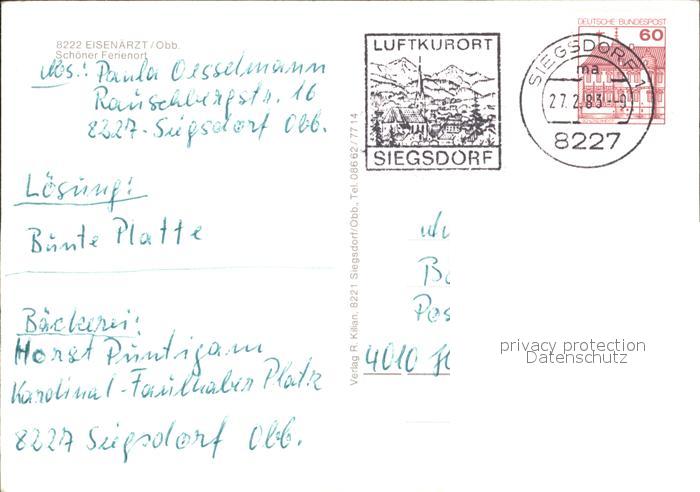 8222 EISENÄRZT/Obb.
Schöner Ferienort
Abs.: Paula Oesselmann
Rauschbergstr. 16
8227-Siegsdorf Obb.
Lösung:
Bunte Platte
Bäckerei:
Horst Püntigam
Kardinal-Faulhaber Platz
8227 Siegsdorf Obb.
Verlag R. Kilian, 8221 Siegsdorf/Obb., Tel. 08662/7714
LUFTKURORT
SIEGSDORF
SIEGSDORF
ma
27.2.83
8227
DEUTSCHE BUNDESPOST
60
4010
privacy protection
Datenschutz